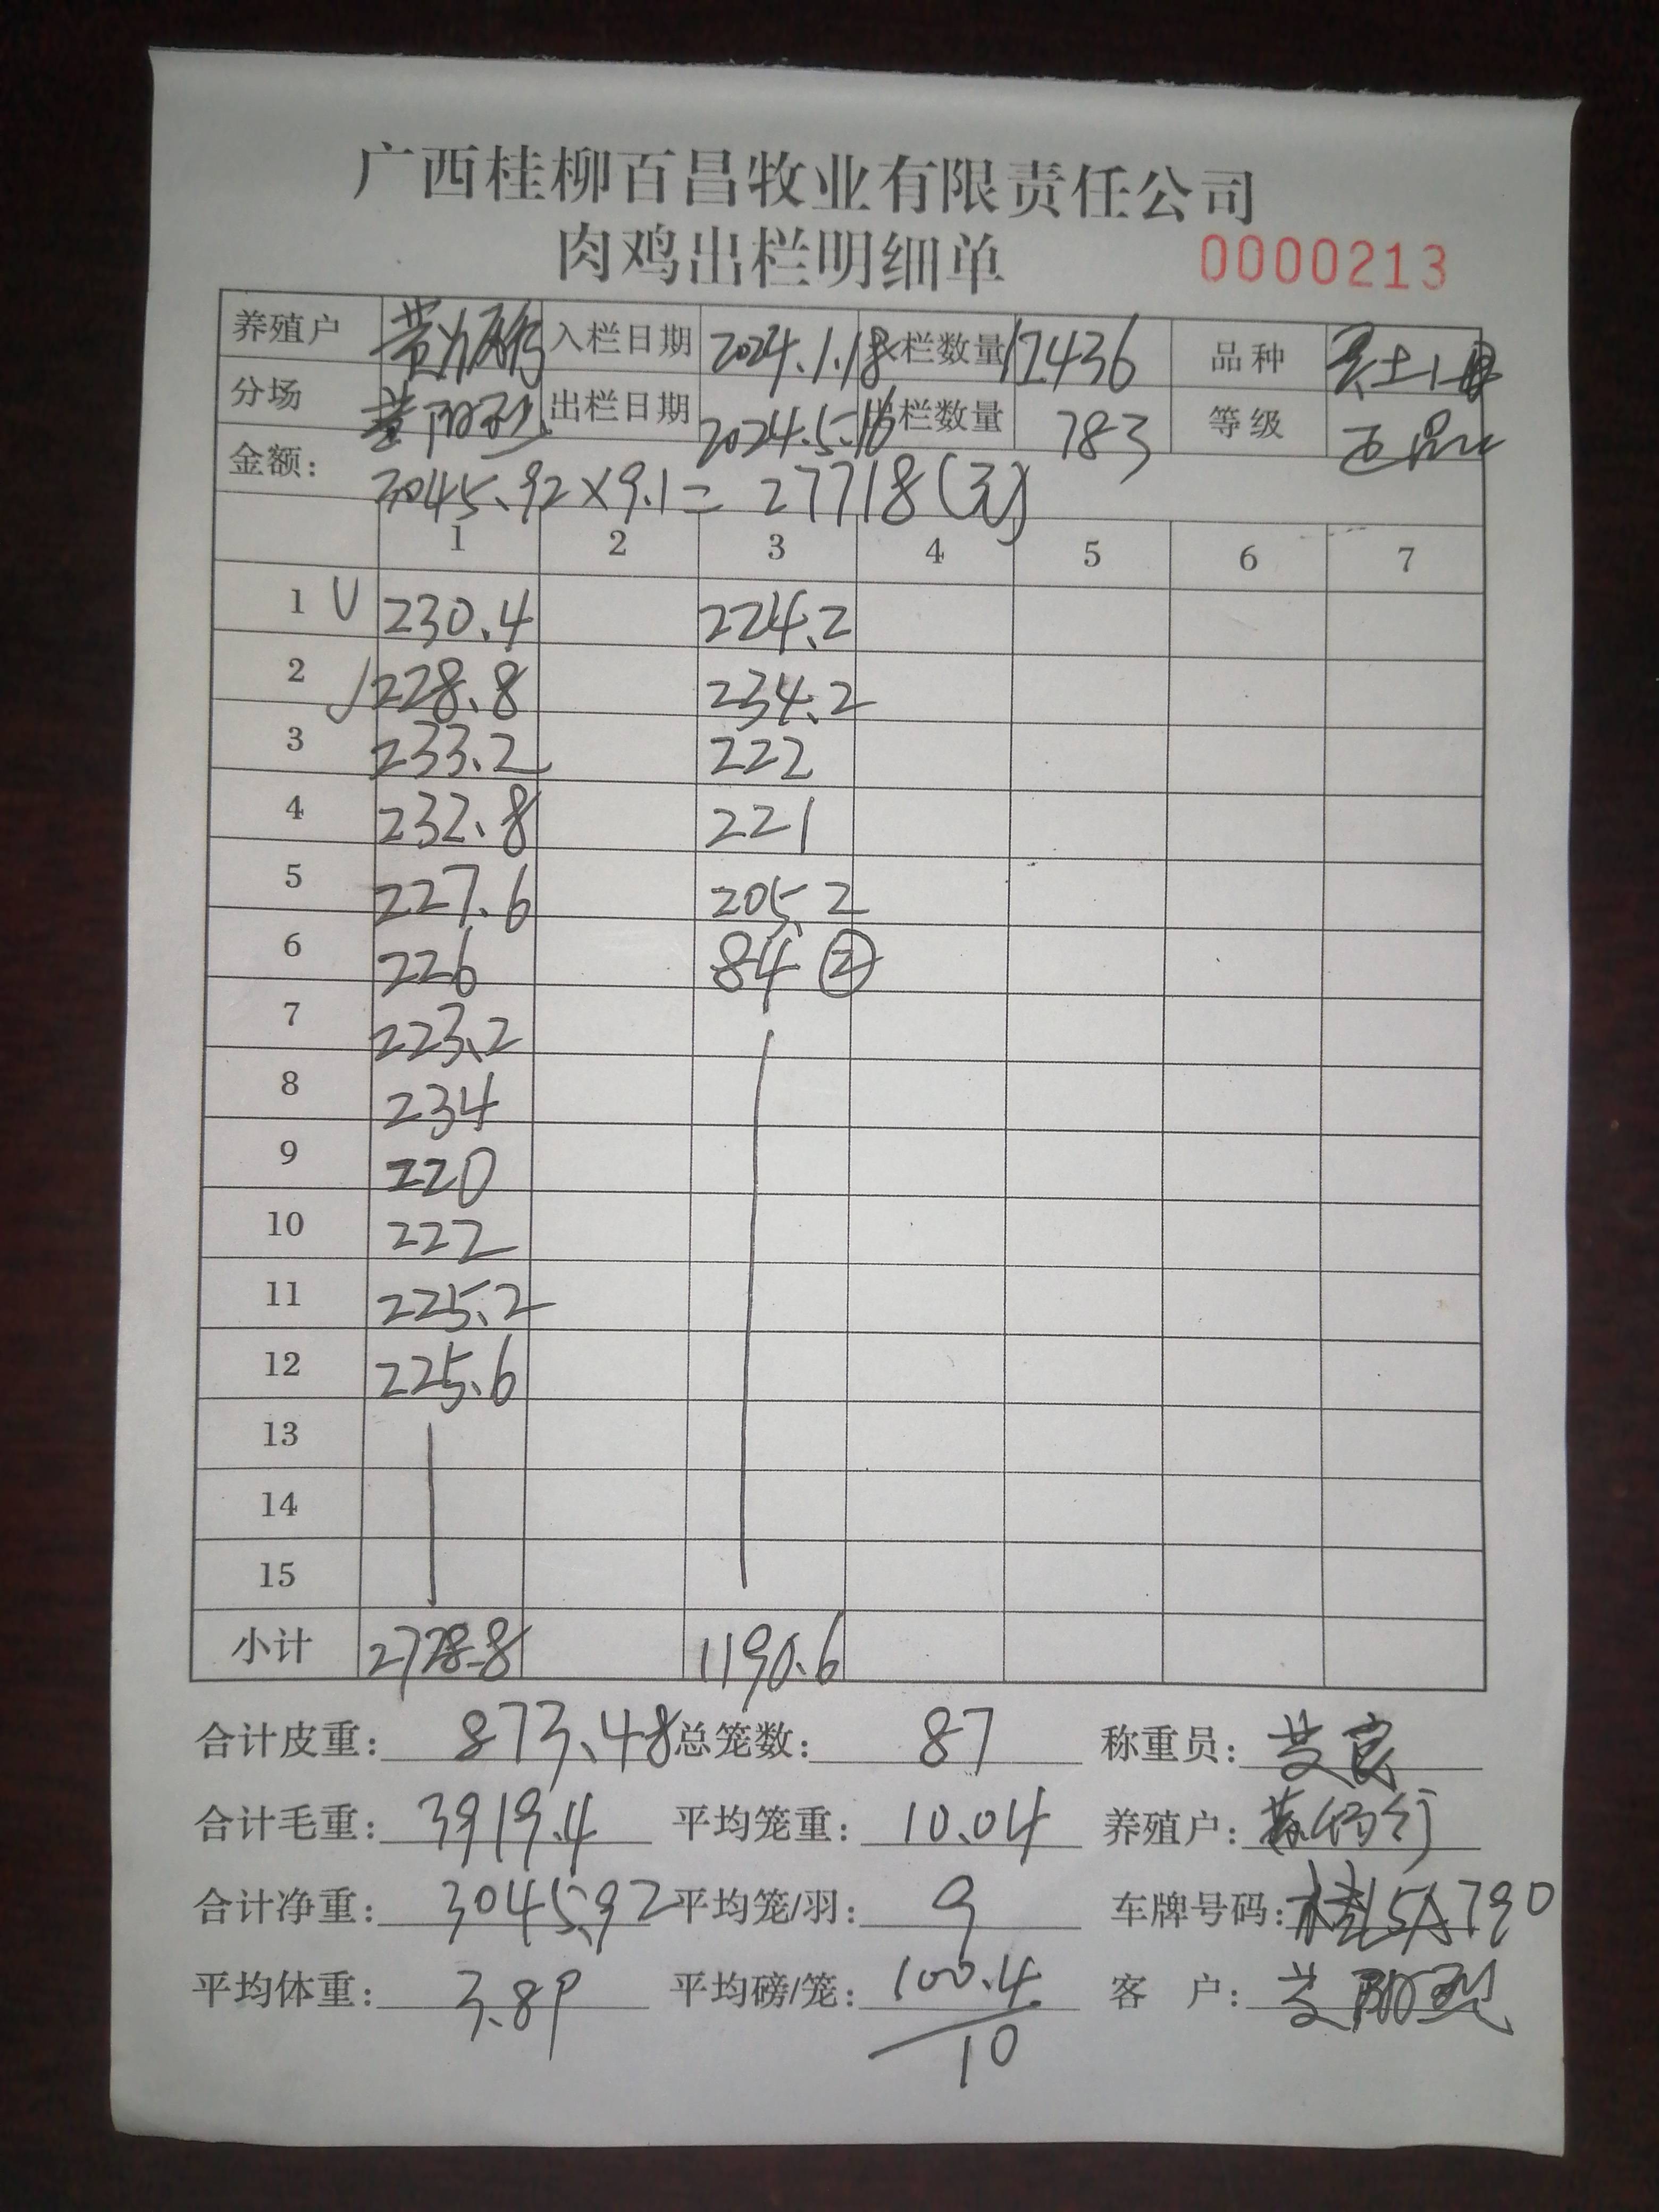 广西桂柳百昌牧业有限责任公司
肉鸡出栏明细单 0000213
养殖户 入栏日期 2024.1.18 栏数量 12436 品种 土1母
分场 出栏日期 2024.5.16 出栏数量 783 等级
金额: 3045.92×9.1=27718(元)
1 2 3 4 5 6 7
1 230.4 224.2
2 228.8 234.2
3 233.2 222
4 232.8 221
5 227.6 205.2
6 226 84 ②
7 223.2
8 234
9 220
10 222
11 225.2
12 225.6
13
14
15
小计 2728.8 1190.6
合计皮重: 873.48 总笼数: 87 称重员:
合计毛重: 3919.4 平均笼重: 10.04 养殖户:
合计净重: 3045.92 平均笼/羽: 9 车牌号码: 桂L5A790
平均体重: 3.89 平均磅/笼: 100.4 客 户:
10